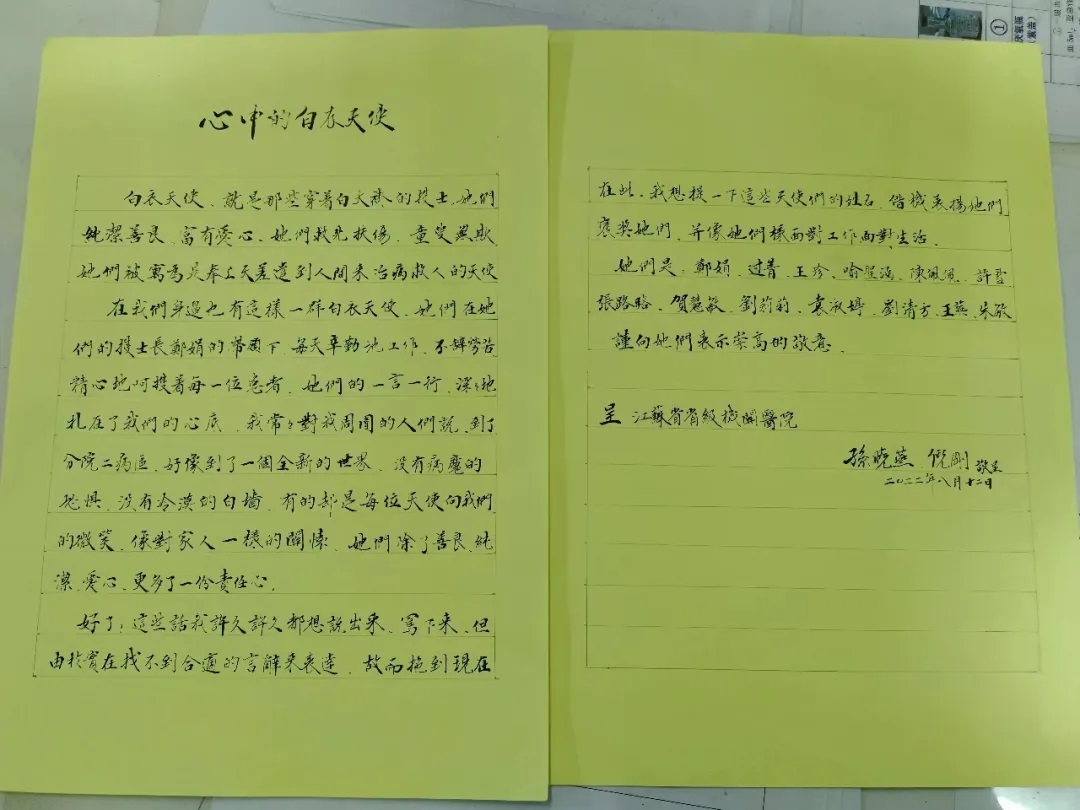 心中的白衣天使
白衣天使、就是那些穿著白大褂的護士、她們
純潔善良、富有愛心、她們救死扶傷、童叟無欺
她們被寓為是奉上天差遣到人間來治病救人的天使
在我們身邊也有這樣一群白衣天使、她們在她
們的護士長鄭娟的帶領下、每天辛勤地工作、不辭勞苦
精心地呵護着每一位患者、她們的一言一行、深深地
扎在了我們的心底、我常常對我周圍的人們說、到了
分院二病區、好像到了一個全新的世界、沒有病魔的
恐惧、沒有冷漠的白墻、有的都是每位天使向我們
的微笑、像對家人一樣的關懷、她們除了善良、純
潔、愛心、更多了一份責任心.
好了！這些話我許久許久都想說出來、寫下來、但
由於實在找不到合適的言辭來表達、故而拖到現在
在此、我想提一下這些天使們的姓名、借機表揚他們
褒獎她們、并像她們樣面對工作面對生活.
她們是：鄭娟、过菁、王珍、喻、陳、許雪
張路路、賀慧敏、劉莉莉、袁淑婷、劉清方、王燕、朱敏
謹向她們表示崇高的敬意.
呈 江蘇省省級機關醫院
孫曉燕 倪剛 敬呈
二〇二二年八月十二日
①